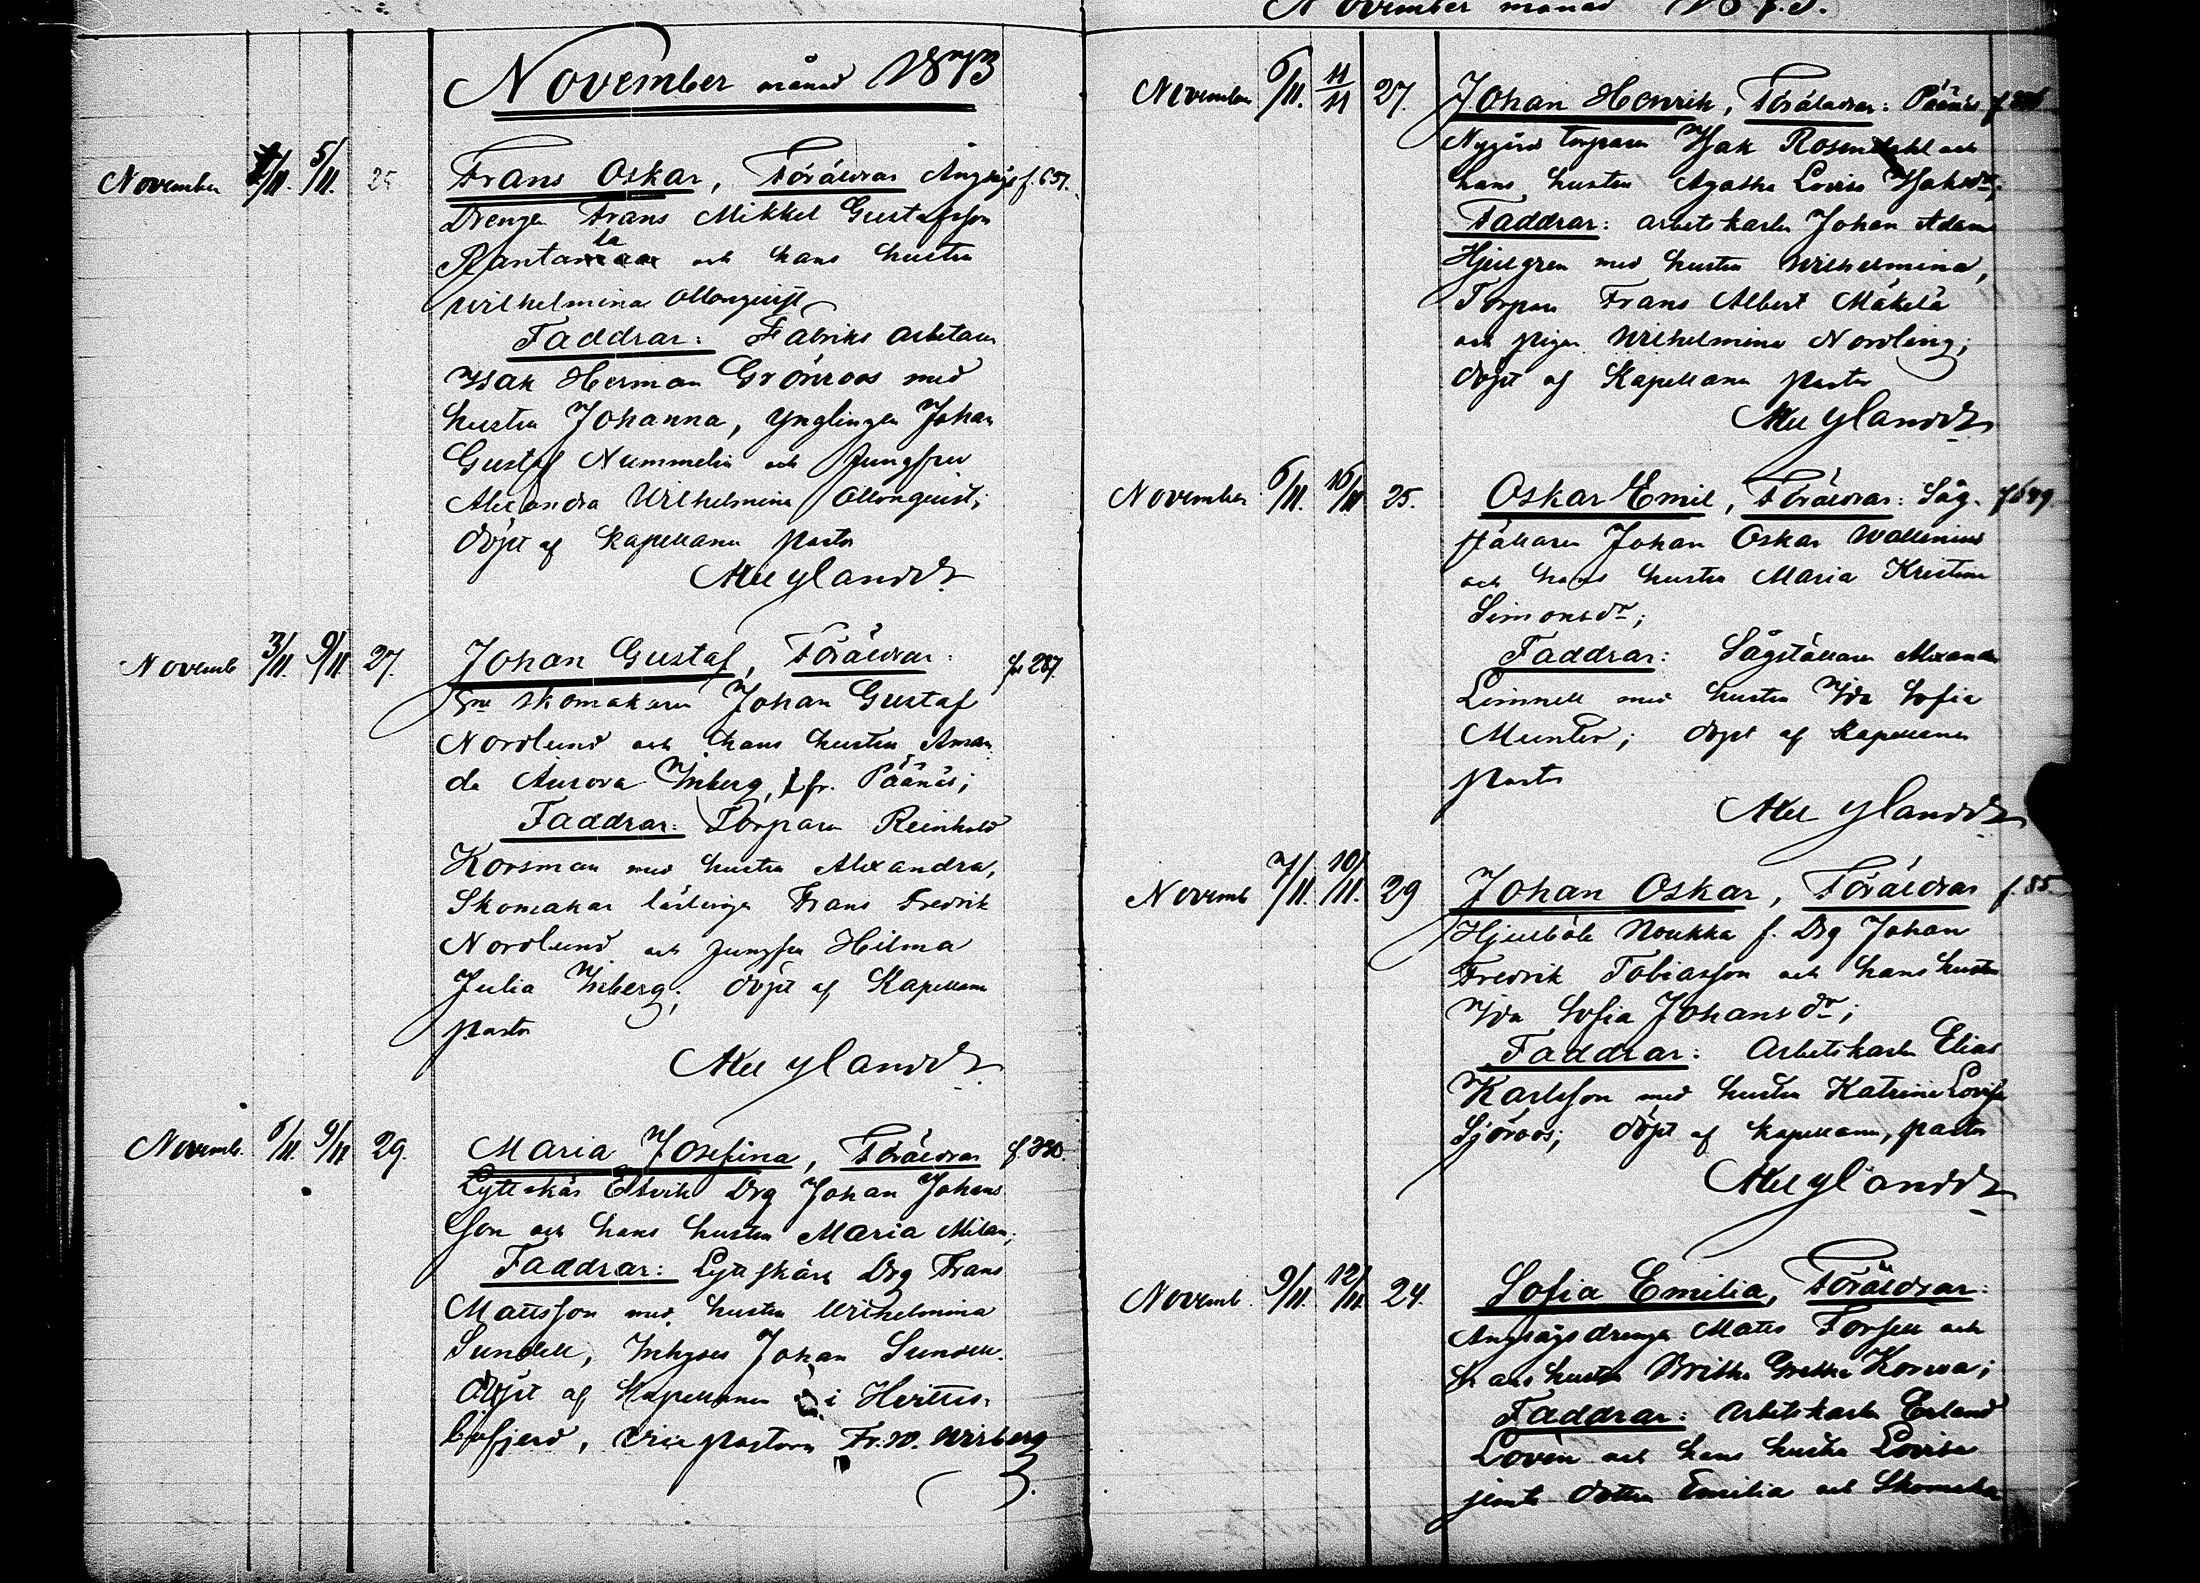 November månad 1873
November 4/11. 5/11. 25 Frans Oskar, Föräldrar Ångsågs f. 651.
Drengen Frans Mikkel Gustafsson
Rantala och hans hustru
Wilhelmina Ollonqvist
Faddrar: Fabriks arbetaren
Isak Herman Grönroos med
hustru Johanna, ynglingen Johan
Gustaf Nummelin och Jungfru
Alexandra Wilhelmina Ollonquist;
döpt af Kapellanen pastor
Axel Ylander
Novemb 3/11. 9/11 27. Johan Gustaf, Föräldrar: 287.
Skomakaren Johan Gustaf
Nordlund och hans hustru Aman
da Aurora Inberg, fr. Påånäs;
Faddrar: Torparen Reinhold
Korsman med hustru Alexandra,
Skomakar lärlinge Frans Fredrik
Nordlund och jungfru Hilma
Julia Inberg; döpt af Kapellanen
pastor
Axel Ylander
Novemb. 6/11 9/11 29. Maria Josefina, Föräldrar f 330.
Lyttskär Drg Johan Johans
son och hans hustru Maria Milan;
Faddrar: Lyttskärs Drg Frans
Mattsson med hustru Wilhelmina
Sundell, Inhyses Johan Sundell.
döpt af Kapellanen i Hvittis-
bofjerd, Vice pastorn Fr. W.
November månad
November 6/11. 11/11 27. Johan Henrik, Föräldrar: Påånäs
Nygård torparen Isak Rosendahl och
hans hustru Agatha Lovisa Isaksdr;
Faddrar: arbetskarlen Johan Adam
Hjulgren med hustru Wilhelmina,
Torparen Frans Albert Mäkelä
och pigan Wilhelmina Nordling;
döpt af Kapellanen pastor
Axel Ylander
November 6/11. 16/11 25. Oskar Emil, Föräldrar: Såg- f 649.
ställaren Johan Oskar Wallenius
och hans hustru Maria Kristina
Simonsdr;
Faddrar: Sågställaren Alexander
Linnell med hustru Ida Sofia
Munter; döpt af Kapellanen
pastor
Axel Ylander
Novemb 7/11. 10/11. 29 Johan Oskar, Föräldrar f. 85
Hjulböle Noukka f. Drg Johan
Fredrik Tobiasson och hans hustru
Ida Sofia Johansdr;
Faddrar: Arbetskarlen Elias
Karlsson med hustru Katrina Lovisa
Sjöroos; döpt af Kapellanen, pastor
Axel Ylander
Novemb. 9/11. 12/11 24. Sofia Emilia, Föräldrar:
Ångsågsdrengen Matts Forsell och
hans hustru Britha Gretha Korwa;
Faddrar: Arbetskarlen Erland
Lovén och hans hustru Lovisa
jemte dottren Emilia och Skomaka